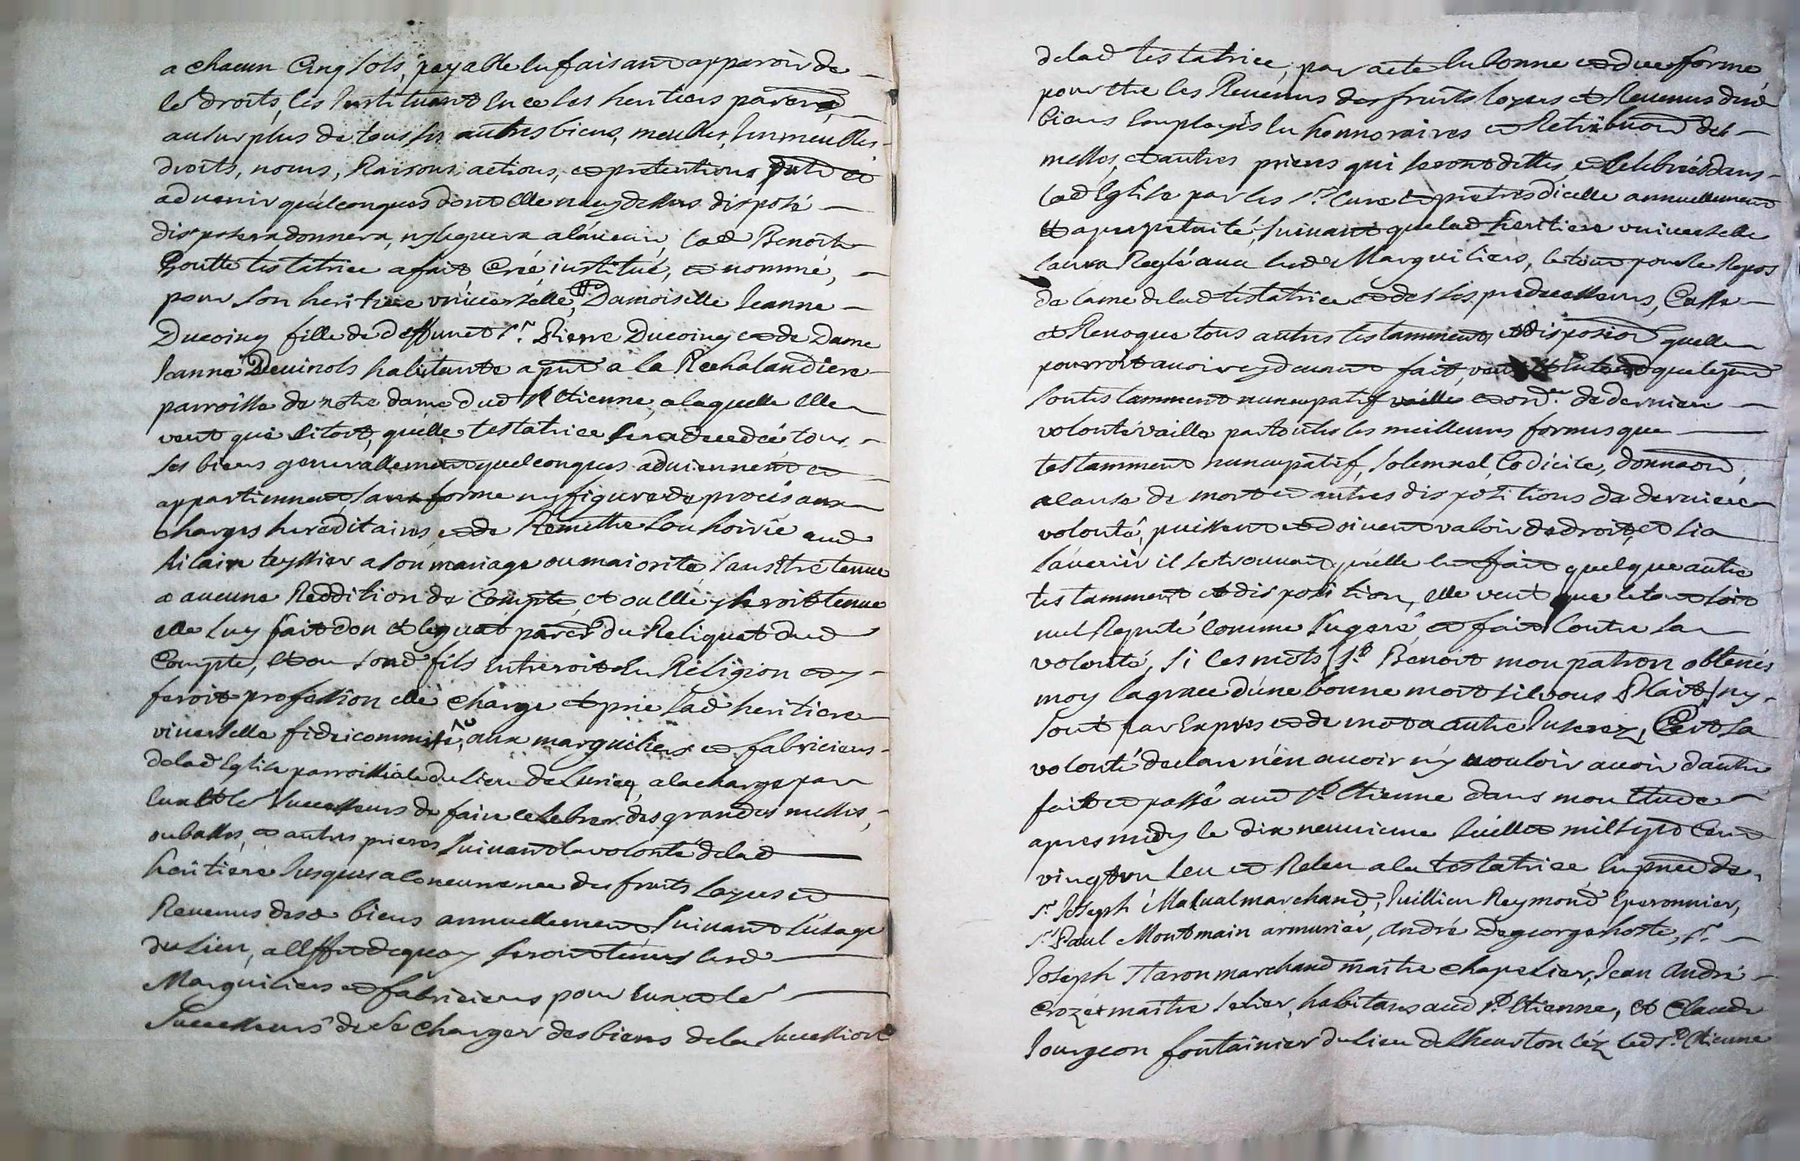 a chacun Cinq sols, payable En faisant apparoir de
les droits, les Instituant En ce ses heritiers par[...]
au surplus de tous ses autres biens, meubles, Immeubles
droits, noms, Raisons, actions, et pretentions pnts et
advenir quelconques dont elle n'a cy dessus disposé
disposera donnera, ny leguera a l'avenir, lad Benoite
Goutte testatrice a fait Créé institué, et nommé,
pour son heritiere universelle, Damoiselle Jeanne
Ducoing fille de deffunct Sr. Pierre Ducoing et de Dame
Jeanne habitante a pnt a la Rechalandiere
parroisse de notre dame dud St Etienne, a laquelle elle
veut que sitost, qu'elle testatrice sera decedée tous
ses biens generallement quelconques adviennent et
appartiennent sans forme ny figure de procés aux
charges hereditaires, et de Remettre son hoirie aud
hilaire teyssier a son mariage ou majorité sans etre tenue
a aucune Reddition de Compte, et ou Elle y seroit tenue
elle luy fait don et legat par[...] du Reliquat dud
Compte, et ou sond fils Entreroit En Religion et y
feroit profession elle charge et prie lad heritiere
universelle fideicommise, aux marguiliers et fabriciens
de lad Eglise parroissiale du lieu de Luricq a la charge par
Eux et les Successeurs de faire celebrer des grandes messes,
ou basses, et autres prieres suivant la volonté de lad
heritiere Jusques a concurrence des fruits loyers et
Revenus desd biens annuellement suivant l'usage
du lieu, a l'Effet de quoy seront tenus lesd
Marguiliers et fabriciens pour Eux et les
Successeurs de se charger des biens de la succession
de lad testatrice, par acte En bonne et due forme
pour etre les Revenus des fruits loyers et Revenus desd
biens Employés En honnoraires et Retribuon des
messes, et autres prieres qui seront dittes, et celebrées dans
lad Eglise par les Sr. Curé et pretres d'icelle annuellement
et a perpetuité, suivant que lad heritiere universelle
l'aura Reglé avec lesd Marguiliers, le tout pour le Repos
de l'ame de lad testatrice et de ses predecesseurs, Casse
et Revoque tous autres testamments, et disposion quelle
pourroit avoir cy devant fait, veut et Entend que le pnt
son testamment nuncupatif et ordre. de derniere
volonté vaille par toutes les meilleures formes que
testamment nuncupatif, solemnel Codicile, donnaon
a cause de mort et autres dispositions de derniere
volonté, puissent et doivent valoir de droit, et si a
l'avenir il se trouvoit qu'elle En fait quelque autre
testamment et disposition, elle veut que le tout soit
nul Reputé comme sugeré, et fait Contre sa
volonté, si ces mots (St. Benoit mon patron obtenés
moy la grace d'une bonne mort s'il vous Plait) ny
sont par Expres et de mot a autre Inserez, C'est sa
volonté declarée n'en avoir ny vouloir avoir d'autre
fait et passé aud St Etienne dans mon Etude
apres midy le dix neuvieme Juillet mil sept Cent
vingt un leu et Releu a la testatrice En pnce de
Sr Joseph Malval marchand, Jullien Reymond Eperonnier,
Sr. Paul Montmain armurier, André Degeorge hoste, Sr.
Joseph Staron marchand maitre chapelier, Jean André
Crozet maitre selier, habitans aud St. Etienne, et Claude
Jourgeon fontainier du lieu de lheurton léz led St. Etienne